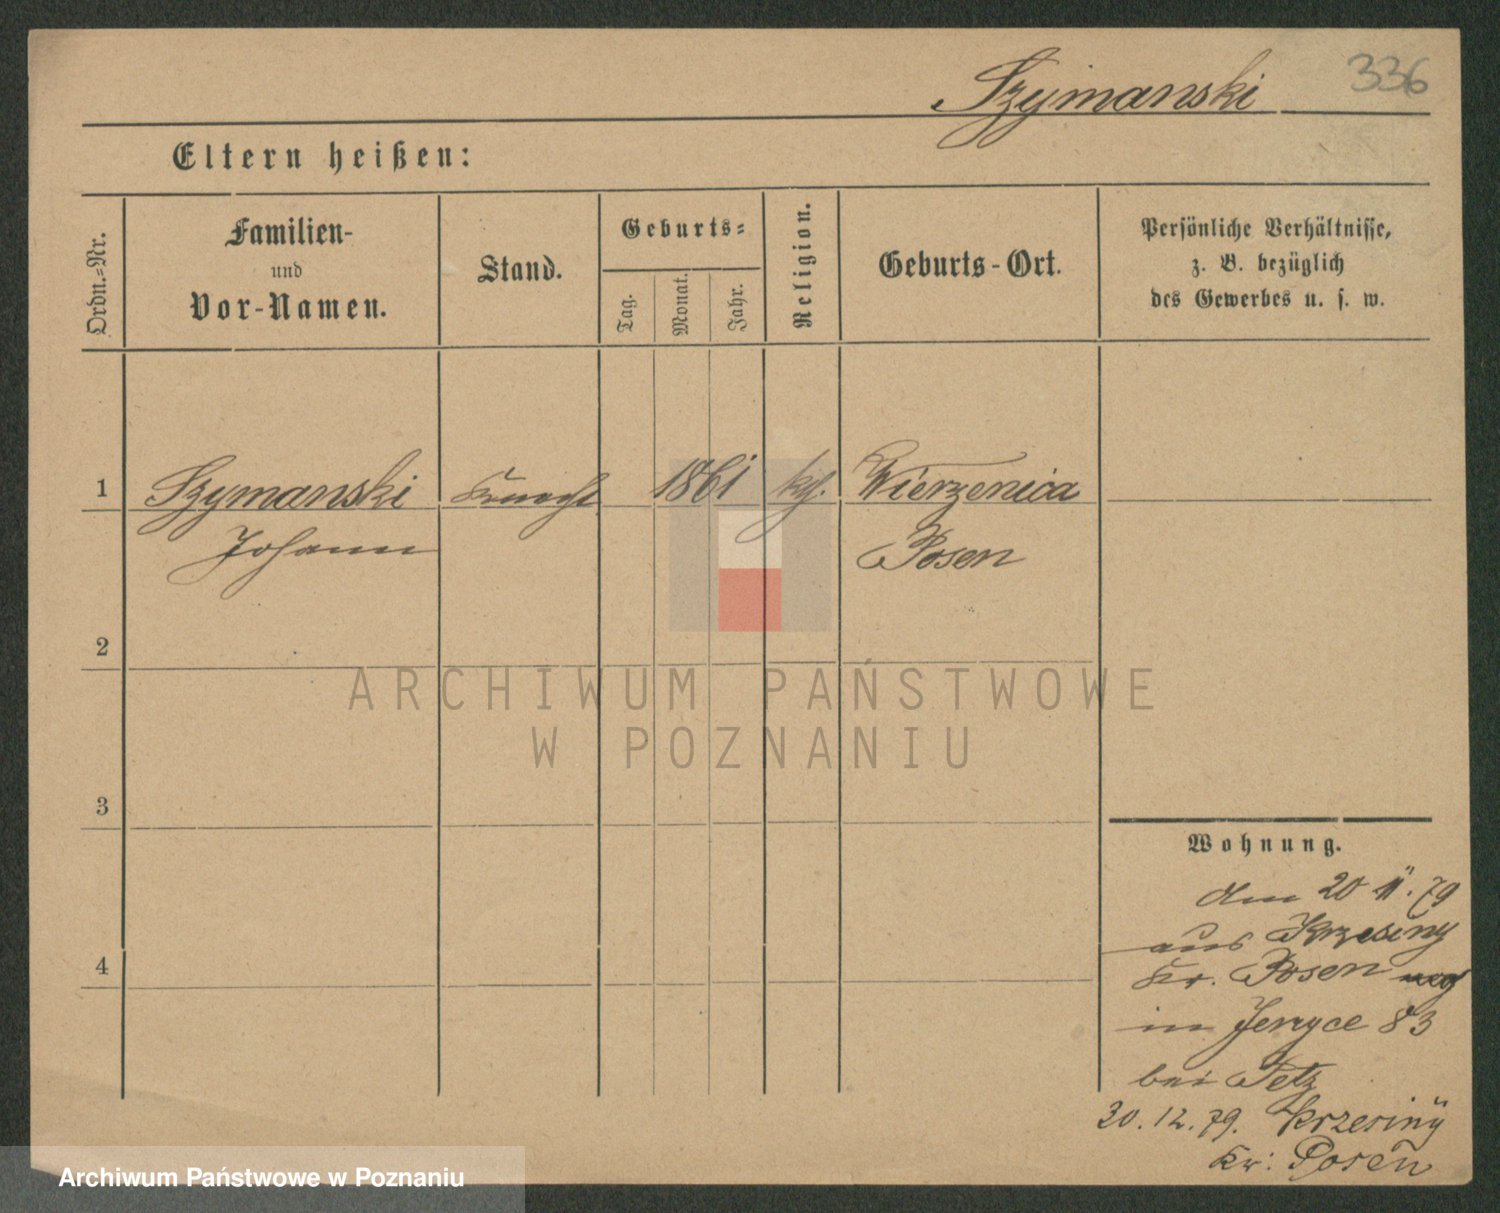 Szymanski 336
Eltern heißen:
Ordn.-Nr.
Familien-
und
Vor-Namen.
Stand.
Geburts-
Tag.
Monat.
Jahr.
Religion.
Geburts-Ort.
Persönliche Verhältnisse,
z. B. bezüglich
des Gewerbes u. s. w.
1 Szymanski Knecht 1861 kth. Wierzenica
Johann Posen
2
3
4
Wohnung.
am 20 11. 79
aus Krzesiny
Kr. Posen
in Jerzyce 83
bei Petz
30. 12. 79. Krzesiny
Kr. Posen
ARCHIWUM PAŃSTWOWE
W POZNANIU
Archiwum Państwowe w Poznaniu